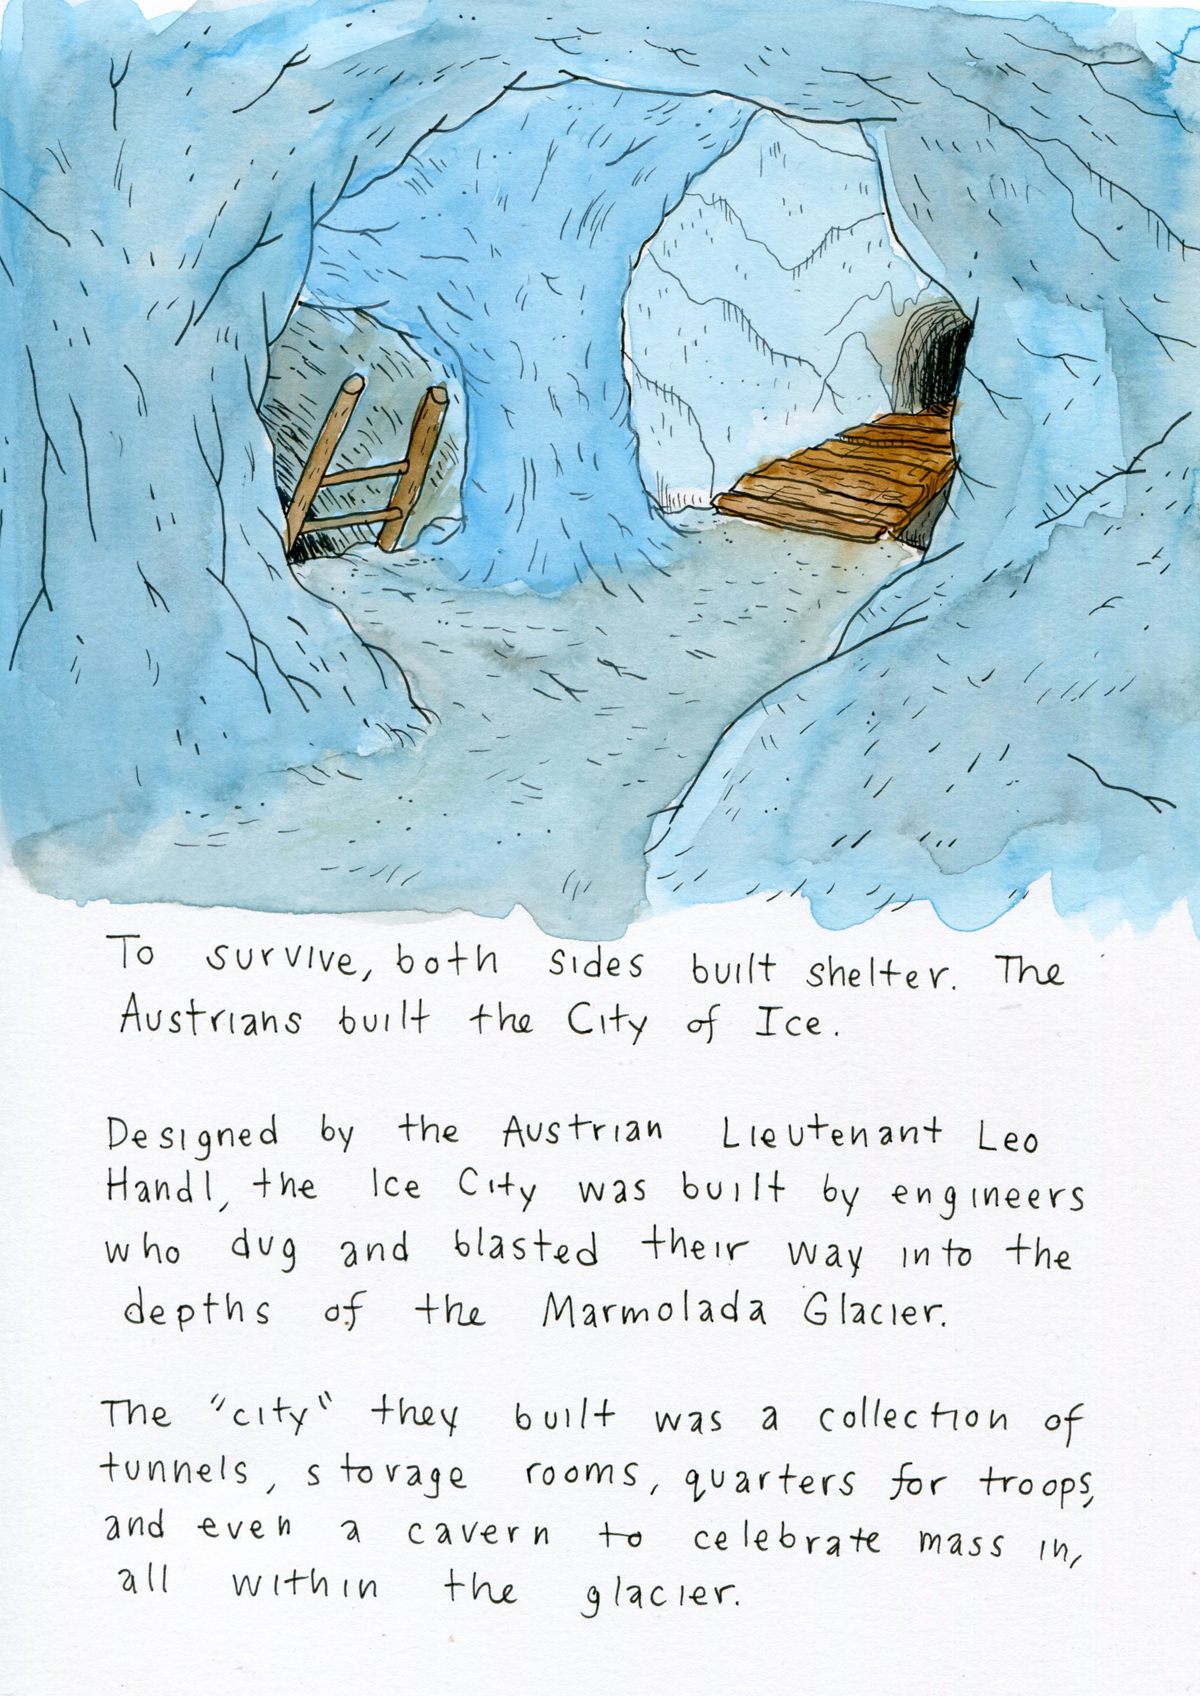 To survive, both sides built shelter. The
Austrians built the City of Ice.
Designed by the Austrian Lieutenant Leo
Handl, the Ice City was built by engineers
who dug and blasted their way into the
depths of the Marmolada Glacier.
The "city" they built was a collection of
tunnels, storage rooms, quarters for troops,
and even a cavern to celebrate mass in,
all within the glacier.